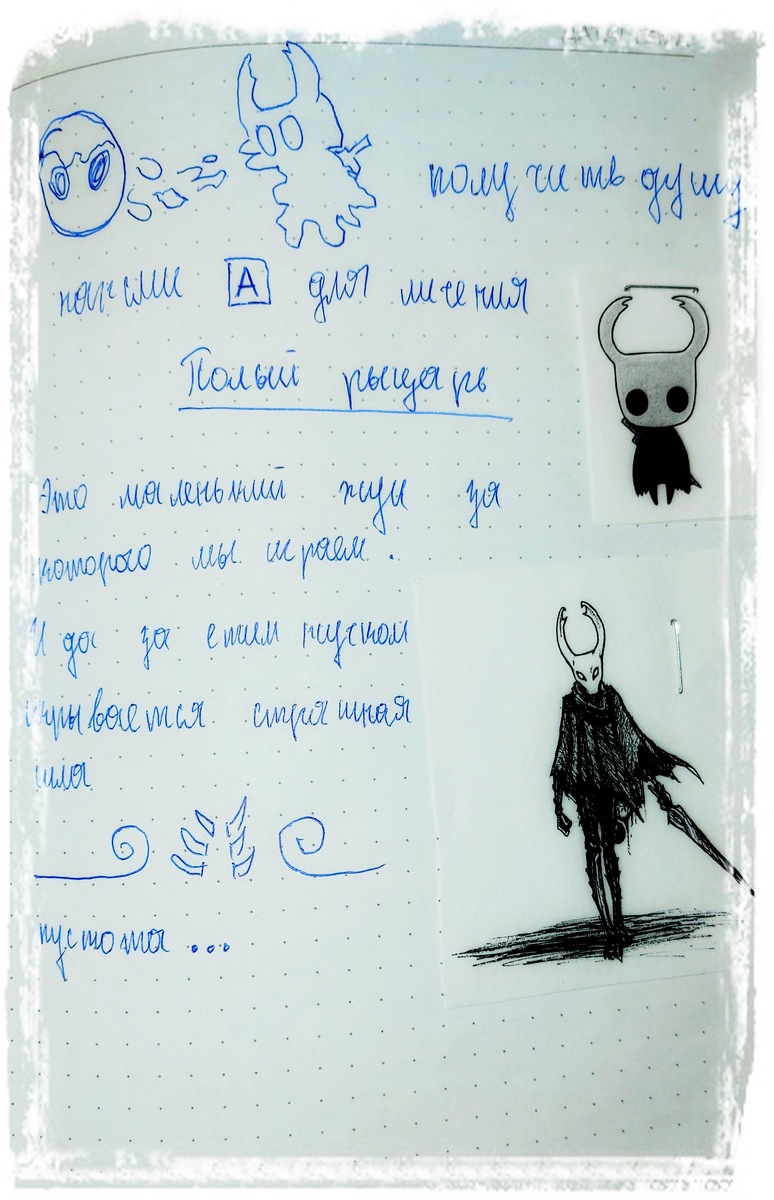 получить душу
нажми A для личения
Полый рыцарь
Это маленький жук за
которого мы играем.
И да за етим жучком
скрывается страшная
сила
пустота...